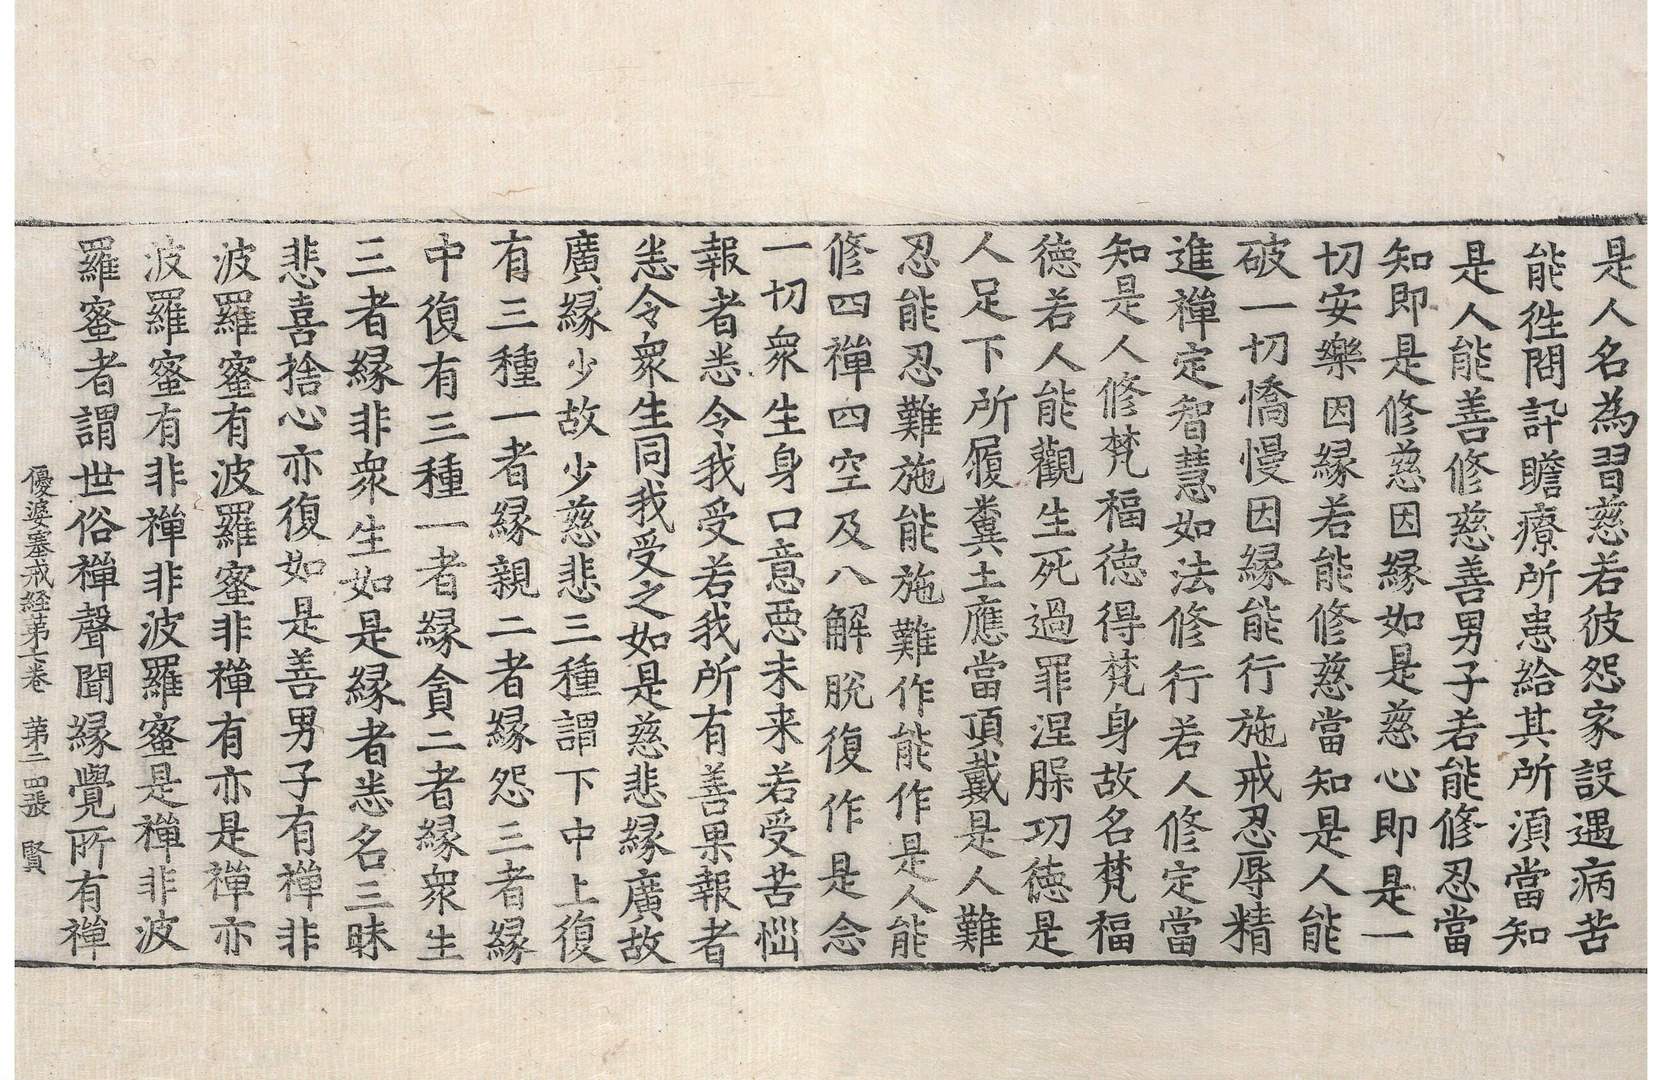 是人名為習慈若彼怨家設遇病苦
能徃問訊瞻療所患給其所湏當知
是人能善修慈善男子若能修忍當
知即是修慈因縁如是慈心即是一
切安樂因縁若能修慈當知是人能
破一切憍慢因縁能行施戒忍辱精
進禪定智慧如法修行若人修定當
知是人修梵福徳得梵身故名梵福
徳若人能觀生死過罪涅槃功徳是
人足下所履糞土應當頂戴是人難
忍能忍難施能施難作能作是人能
修四禪四空及八解脫復作是念
一切衆生身口意惡未来若受苦惱
報者恙令我受若我所有善果報者
恙令衆生同我受之如是慈悲縁廣故
廣縁少故少慈悲三種謂下中上復
有三種一者縁親二者縁怨三者縁
中復有三種一者縁貪二者縁衆生
三者縁非衆生如是縁者恙名三昧
悲喜捨心亦復如是善男子有禪非
波羅蜜有波羅蜜非禪有亦是禪亦
波羅蜜有非禪非波羅蜜是禪非波
羅蜜者謂世俗禪聲聞縁覺所有禪
優婆塞戒経苐七卷　苐二四張　賢